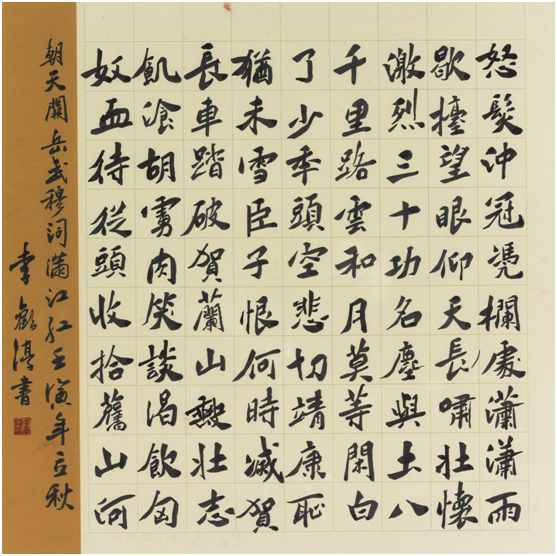 怒髮沖冠憑欄處瀟瀟雨
歇擡望眼仰天長嘯壯懷
激烈三十功名塵與土八
千里路雲和月莫等閑白
了少年頭空悲切靖康恥
猶未雪臣子恨何時滅賀
長車踏破賀蘭山缺壯志
飢飡胡虜肉笑談渴飲匈
奴血待從頭收拾舊山河
朝天闕岳武穆詞滿江紅壬寅年立秋
李書